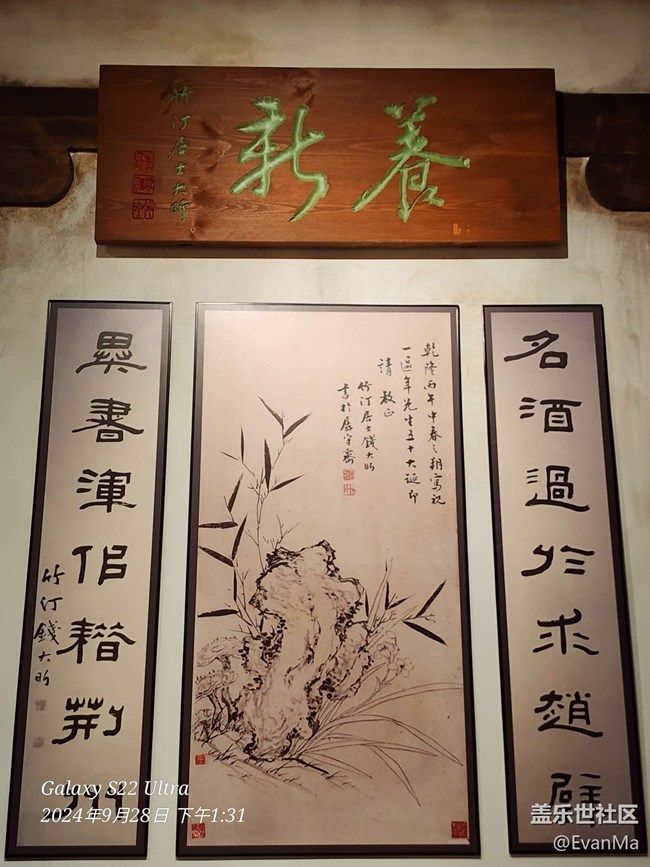 養新
竹汀居士大昕
名酒過於求趙璧
乾隆丙午中春之朔寫祝
一區年先生五十大誕即
請 教正
竹汀居士錢大昕
書於孱守齋
異書渾佀耤荊州
竹汀錢大昕
Galaxy S22 Ultra
2024年9月28日 下午1:31
盖乐世社区
@EvanMa